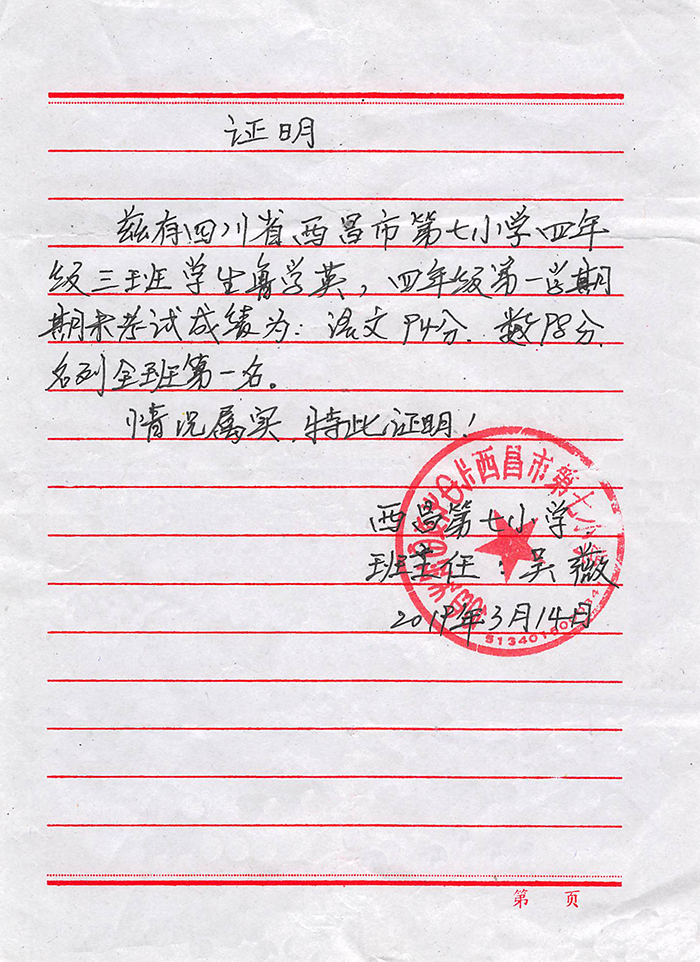 证明
兹有四川省西昌市第七小学四年
级三班学生鲁学英，四年级第一学期
期末考试成绩为：语文94分、数98分、
名列全班第一名。
情况属实，特此证明！
西昌市第七小
西昌第七小学
班主任：吴薇
2019年3月14日
第 页